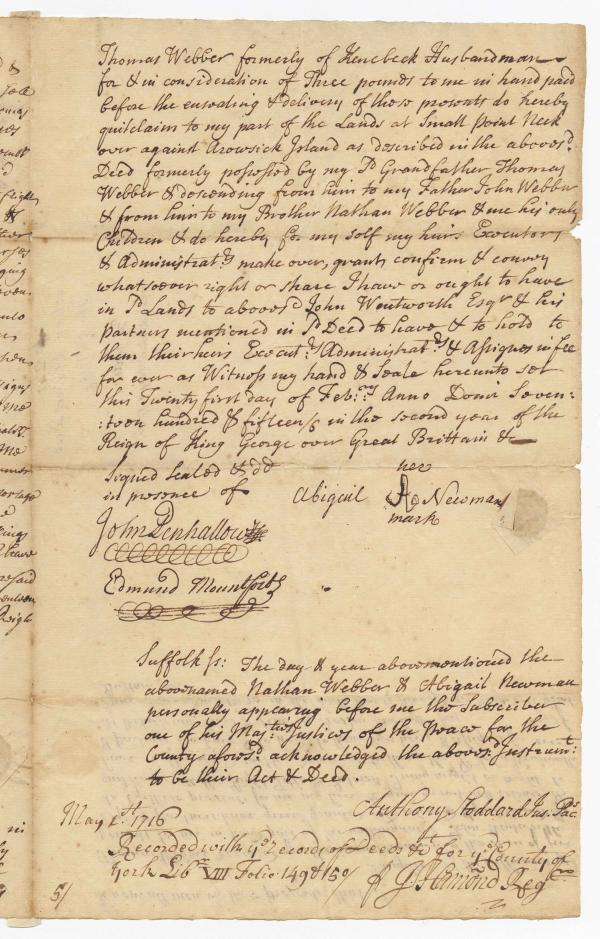 Thomas Webber formerly of Kenebeck Husbandman
for & in consideration of Three pounds to me in hand paid
before the ensealing & delivery of these presents do hereby
quitclaim to my part of the Lands at Small Point Neck
over against Arowsick Island as described in the aboves.d
Deed formerly possessed by my sd Grandfather Thomas
Webber & descending from him to my Father John Webber
& from him to my Brother Nathan Webber & me his only
Children & do hereby for my self my heirs Executors
& Administrat.rs make over, grant, confirm & convey
whatsoever right or share I have or ought to have
in sd Lands to aboves.d John Wentworth Esqr & his
partners mentioned in sd Deed to have & to hold to
them their heirs Execut.rs Administrat.rs & Assignes in fee
for ever as Witness my hand & Seale hereunto set
this Twenty first day of Feb:ry Anno Domi Seven-
:teen hundred & fifteen/s in the second year of the
Reign of King George over Great Brittain &c
Signed Sealed & dd
in presence of
her
Abigail A Newman
mark
John Penhallow
Edmund Mountfort
Suffolk ss: The day & year abovementioned the
abovenamed Nathan Webber & Abigail Newman
personally appearing before me the Subscriber
one of his Maj:ties Justices of the Peace for the
County afores.d acknowledged the aboves.d Instrum.t:
to be their Act & Deed.
Anthony Stoddard Jus. Pac.
May 1716
Recorded with ye records of Deeds &c for ye County of
York Lib.r VIII Folio 149 & 150/
p J Hamond Reg
5/